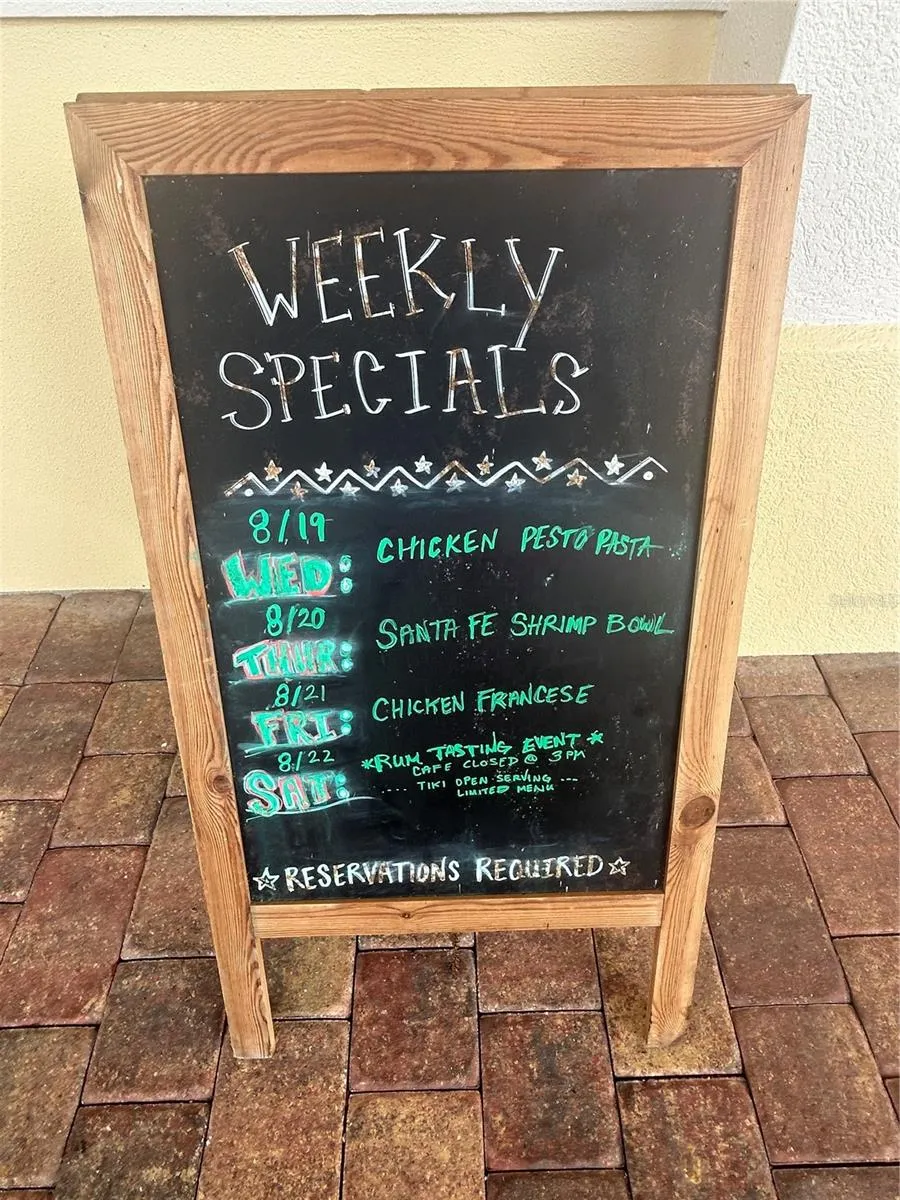 WEEKLY
SPECIALS
8/19
WED: CHICKEN PESTO PASTA
8/20
THUR: SANTA FE SHRIMP BOWL
8/21
FRI: CHICKEN FRANCESE
8/22
SAT: *RUM TASTING EVENT*
CAFE CLOSED @ 3PM
.... TIKI OPEN SERVING ---
LIMITED MENU
☆ RESERVATIONS REQUIRED ☆